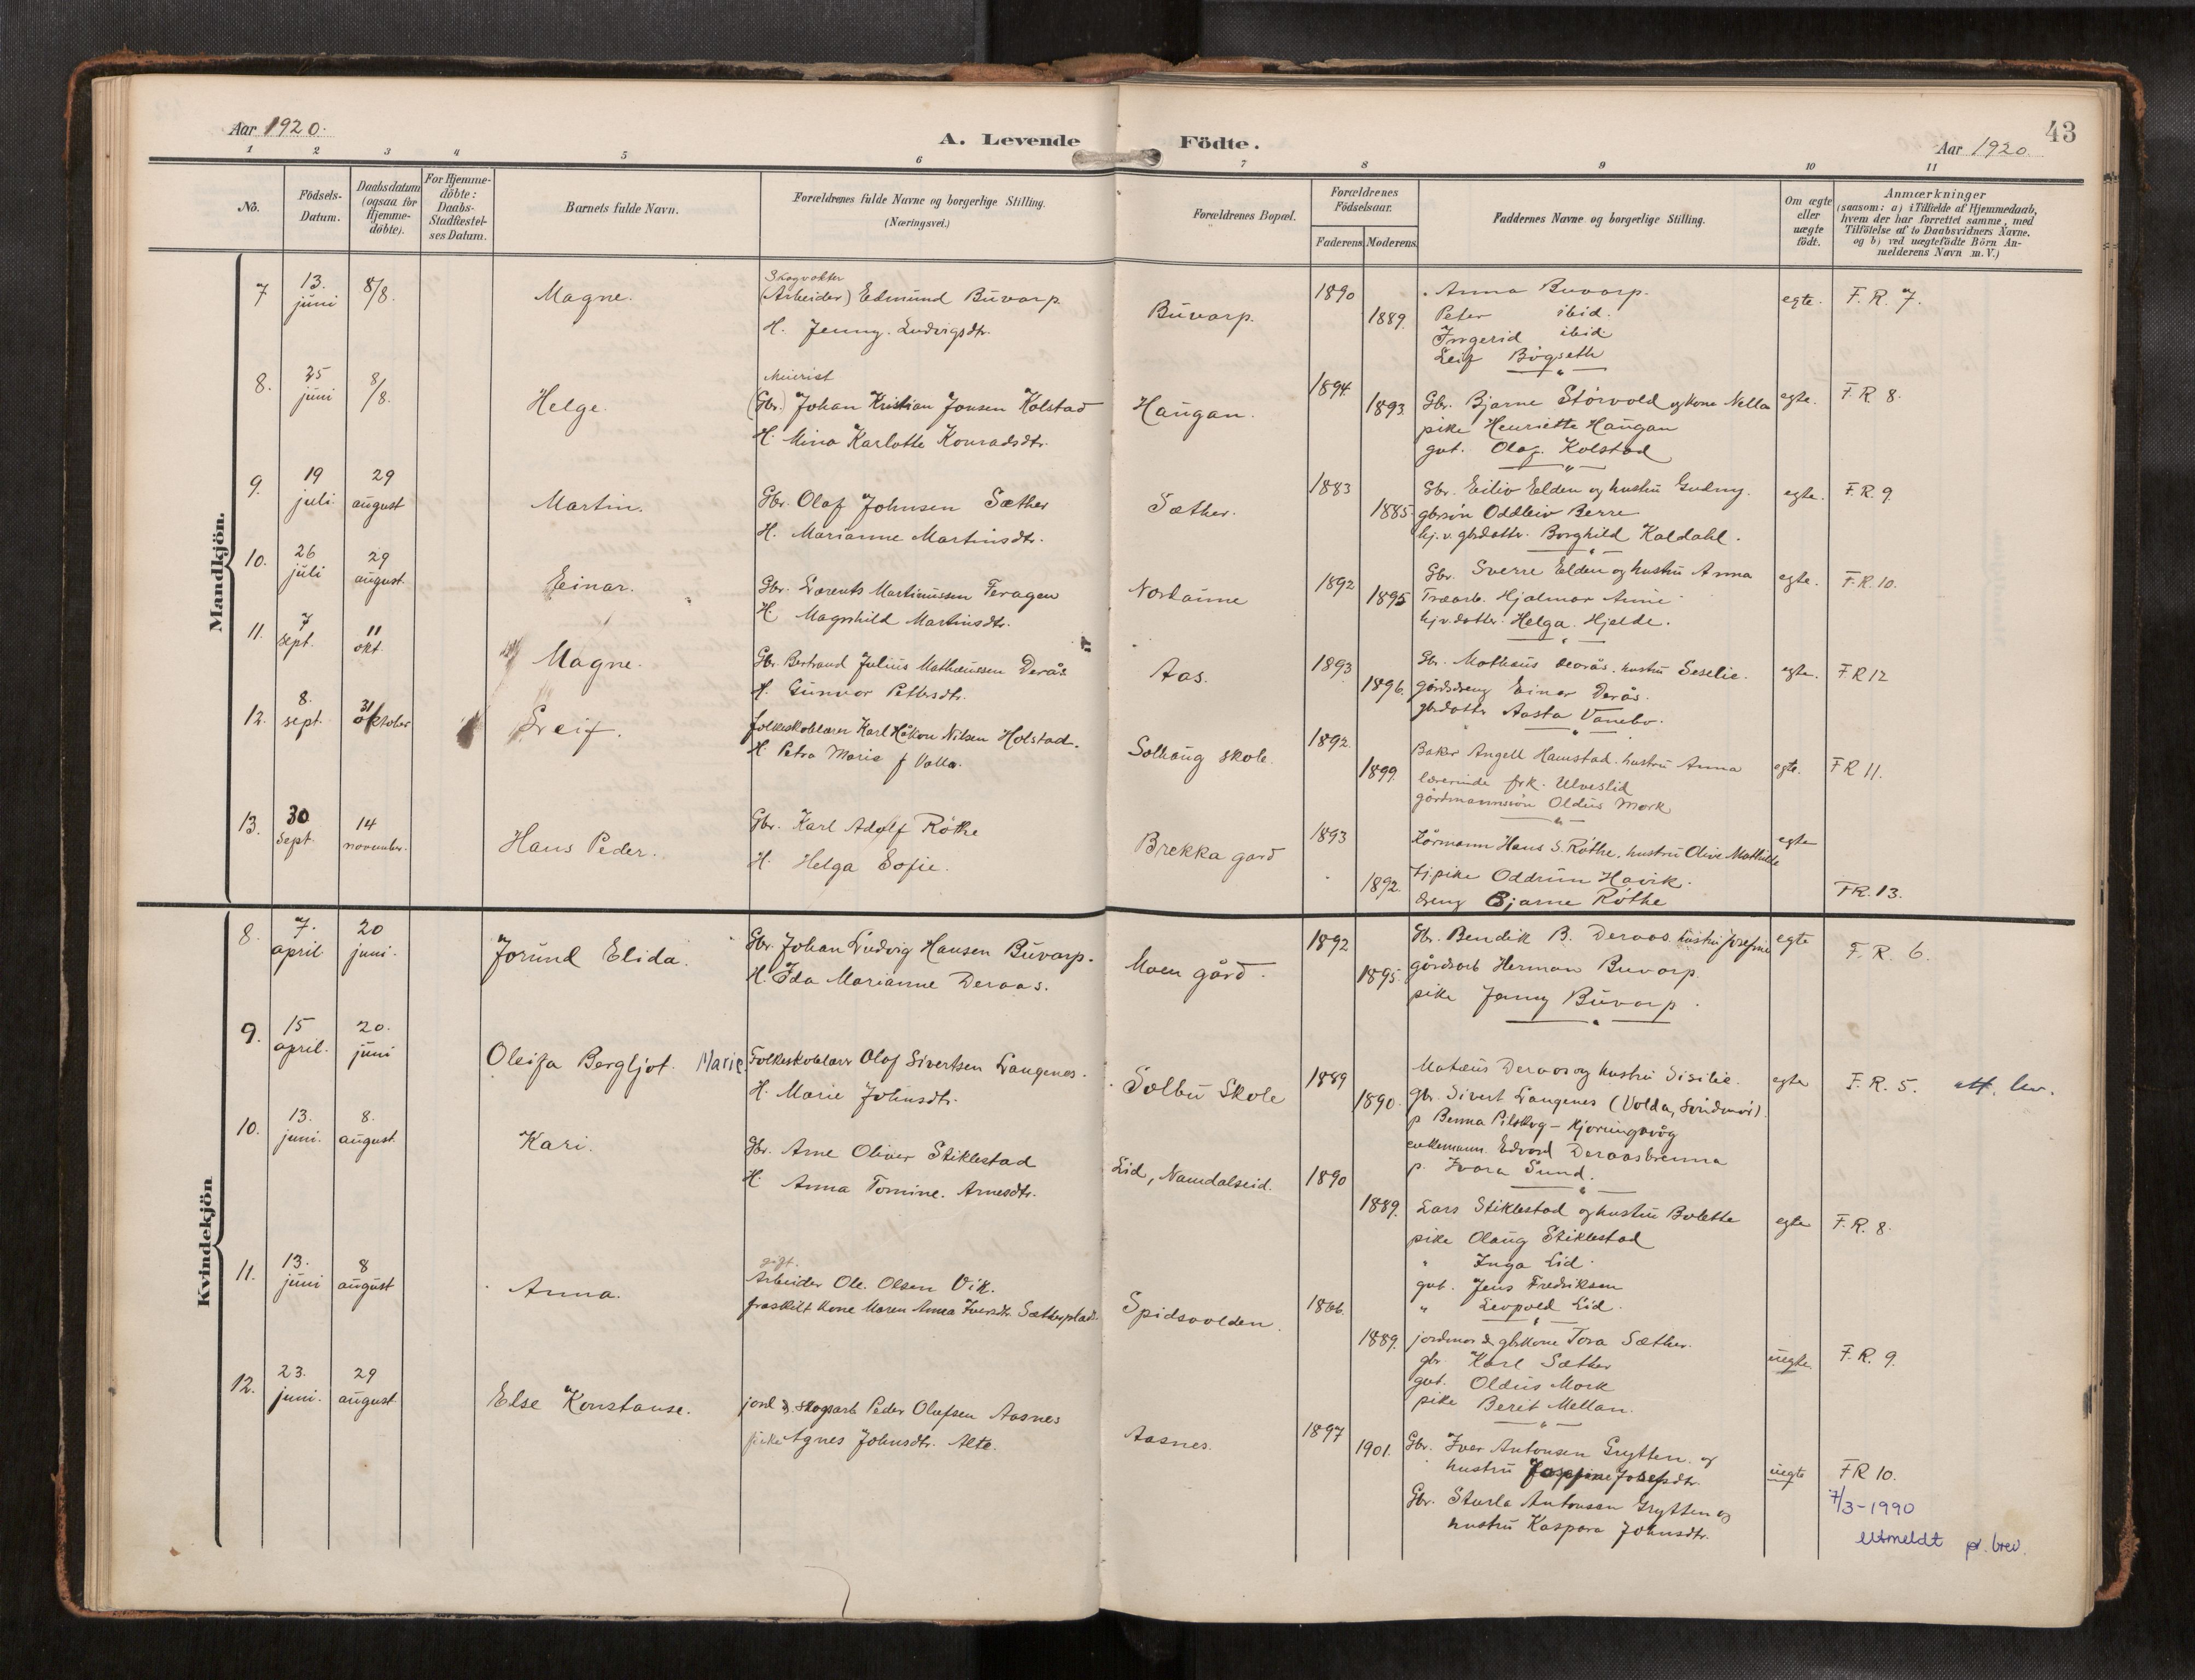 Aar 1920.
A. Levende Födte.
Aar 1920
43
1 2 3 4 5 6 7 8 9 10 11
No.
Födsels-Datum.
Daabsdatum (ogsaa for Hjemme-döbte).
For Hjemme-döbte: Daabs-Stadfæstel-ses Datum.
Barnets fulde Navn.
Forældrenes fulde Navne og borgerlige Stilling. (Næringsvei.)
Forældrenes Bopæl.
Forældrenes Födselsaar.
Faderens Moderens
Faddernes Navne og borgerlige Stilling.
Om ægte eller uægte födt.
Anmærkninger
(saasom: a) i Tilfælde af Hjemmedaab,
hvem der har forrettet samme, med
Tilföielse af to Daabsvidners Navne.
og b) ved uægtefödte Börn An-
melderens Navn m. V.)
Mandkjön.
7 13. juni 8/8. Magne.
Skogvokter
(Arbeider) Edmund Buvarp
H. Jenny Ludvigsdtr.
Buvarp. 1890 1889.
Anna Buvarp.
Peter ibid.
Ingerid ibid
Leif Bögseth
egte. F. R. 7.
8. 25 juni 8/8. Helge.
Meierist
(Gbr.) Johan Kristian Jonsen Kolstad
H. Mina Karlotte Konradsdtr.
Haugan. 1894. 1893.
Gbr. Bjarne Störvold og kone Nella
pike Henriette Haugan
gut. Olaf Kolstad
egte. F. R. 8.
9. 19 juli 29 august Martin.
Gbr. Olaf Johnsen Sæther
H. Marianne Martinsdtr.
Sæther. 1883 1885.
Gbr. Eiliv Elden og hustru Gudny.
gbrsön Oddleiv Berre
hj.v. gbrdattr. Borghild Kaldahl.
egte. F. R. 9.
10. 26 juli 29 august Einar.
Gbr. Lorents Martinussen Feragen
H. Magnhild Martinsdtr.
Nordaune 1892 1895
Gbr. Sverre Elden og hustru Anna
Træarb. Hjalmar Aune
hj.v. datter Helga Hjelde.
egte. F. R. 10.
11. 7 sept. 11 okt. Magne.
Gbr. Bertrand Julius Mathæussen Derås
H. Gunvor Pettersdtr.
Aas. 1893 1896.
Gbr. Mathæus Derås. hustru Seselie.
gårdsdreng Einar Derås.
gbrdatter Aasta Vanebo.
egte. F. R 12
12. 8. sept. 31 oktober Leif.
folkeskolelærer Karl Håkon Nilsen Holstad.
H. Petra Marie f Valla.
Solhaug skole. 1892. 1899.
Baker Angell Hamstad. hustru Anna
lærerinde frk. Ulveslid
gårdmannssön Oldus Mork
egte. F R 11.
13. 30 sept. 14 november. Hans Peder.
Gbr. Karl Adolf Röthe
H. Helga Sofie.
Brekka gard 1893 1892.
Körmann Hans S. Röthe, hustru Olive Mathilde
Tj.pike Oddrun Havik.
dreng Bjarne Röthe
egte F.R. 13.
Kvindekjön
8. 7. april 20 juni. Jorund Elida.
Gbr. Johan Ludvig Hansen Buvarp.
H. Ida Marianne Deraas.
Moen gård. 1892 1895.
Gbr. Bendik B. Deraas hustru Josefine
gårdsarb Herman Buvarp.
pike Jenny Buvarp.
egte F. R. 6.
9. 15 april. 20. juni Oleifa Bergljot. Marie.
Folkeskolelærer Olaf Sivertsen Langenes.
H. Marie Johnsdtr.
Solbu Skole 1889 1890.
Matæus Deraas og hustru Sisilie.
gbr. Sivert Langenes (Volda, Söndmör).
p Benna Pilskog - Kjörringsvåg
enkemann Edvard Deraasbrenna
p. Ivara Sund.
egte F. R. 5. att. lev.
10. 13. juni. 8. august. Kari.
Gbr. Arne Olivier Stiklestad
H. Anna Tomine. Arnesdtr.
Eid, Namdalseid. 1890 1889.
Lars Stiklestad og hustru Bolette
pike Olaug Stiklestad
" Inga Lid
gut. Jens Fredriksen
" Leopold Lid.
egte F. R. 8.
11. 13. juni 8 august Anna.
gift.
Arbeider Ole Olsen Vik.
fraskilt kone Maren Anna Iversdtr. Sætherplads.
Spidsvolden. 1866. 1889.
jordmor & gbrkone Tora Sæther.
gbr. Karl Sæther
gut. Oldus Mork
pike Berit Mellan.
uegte F. R. 9.
12. 23. juni. 29 august Else Konstanse.
jord & skogsarb Peder Olufsen Aasnes
pike Agnes Johnsdtr. Alte.
Aasnes. 1897 1901.
Gbr. Iver Antonsen Grytten og
hustru Josefine Josefsdtr.
Gbr. Sturla Antonsen Grytten og
hustru Kaspara Johnsdtr.
uegte F R 10.
7/3-1990
Utmeldt pr. brev.